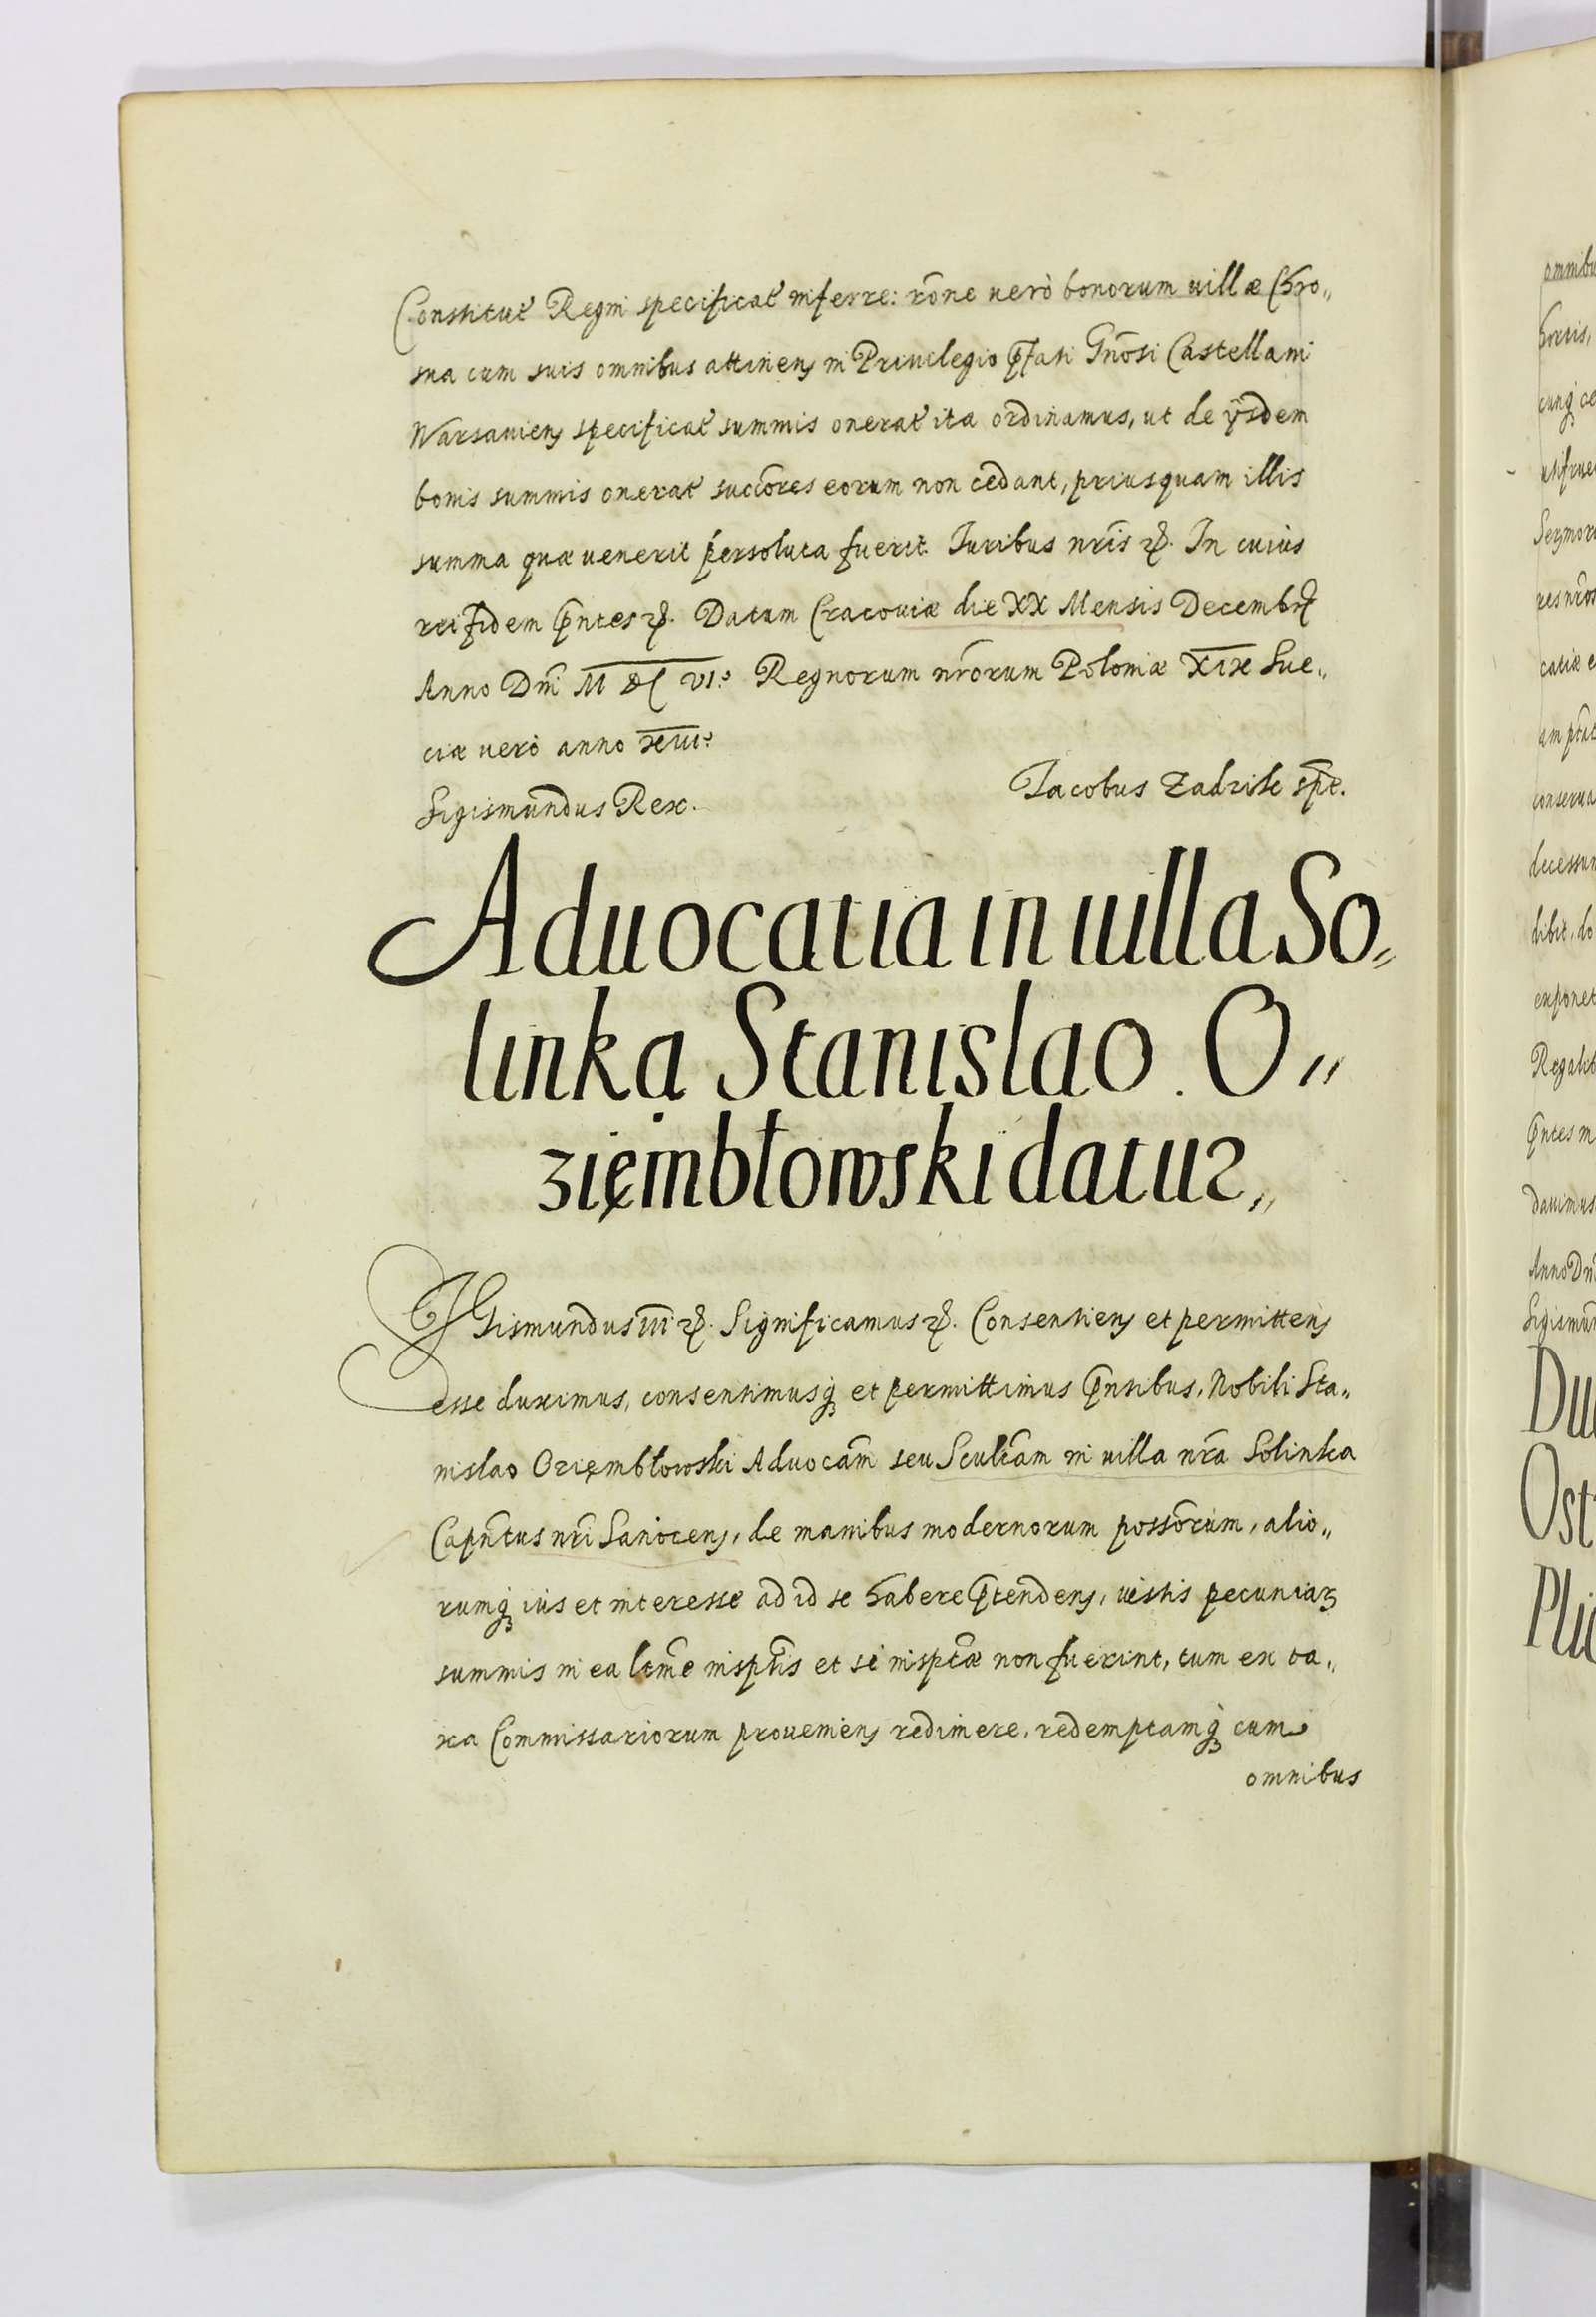 Constitut̃ Regni specificat̃ inferre: rõne uerò bonorum uillæ Chro„
sna cum suis omnibus attinen̄ in Priuilegio p̄fati Gn̄osi Castellani
Warsauien̄ specificat̃ summis onerat̃ ita ordinamus, ut de ijsdem
bonis summis onerat̃ succ̄ores eorum non cedant, priusquam illis
summa quæ uenerit persoluta fuerit. Iuribus nr̄is &. In cuius
rei fidem p̄ntes &. Datum Cracouiæ die XX Mensis Decembr̄
Anno Dn̄i M DC VI.º Regnorum nr̄orum Poloniæ XIX Sue„
ciæ uerò anno XIII.º
Sigismundus Rex.
Iacobus Zadzik spt̄.
Aduocatia in uilla So„
linka Stanislao O„
zięmbłowski datur„
SIGismundus III &. Significamus &. Consentien̄ et permitten̄
esse duximus, consentimusq̨ et permittimus p̄ntibus, Nobili Sta„
nislao Ozięmbłowski Aduocãm seu Scult̄am in uilla nr̄a Solinka
Capn̄tus nr̄i Sanocen̄, de manibus modernorum poss̄orum, alio„
rumq̨ ius et interesse ad id se habere p̄tenden̄, uestis pecuniar̃
summis in ea ltm̄e inspt̄is et si inspt̄æ non fuerint, tum ex ta„
xa Commissariorum prouenien̄ redimere, redemptamq̨ cum
omnibus
ommibu
hortis,
cunq̨ ce
usifrue
Seymor
res nr̄os
catiæ e
am ptāt
conserua
decessum
dibit, do
exponet
Regalib
p̄ntes m
dauimus
Anno Dn̄
Sigismun
Du
Ost
Pli